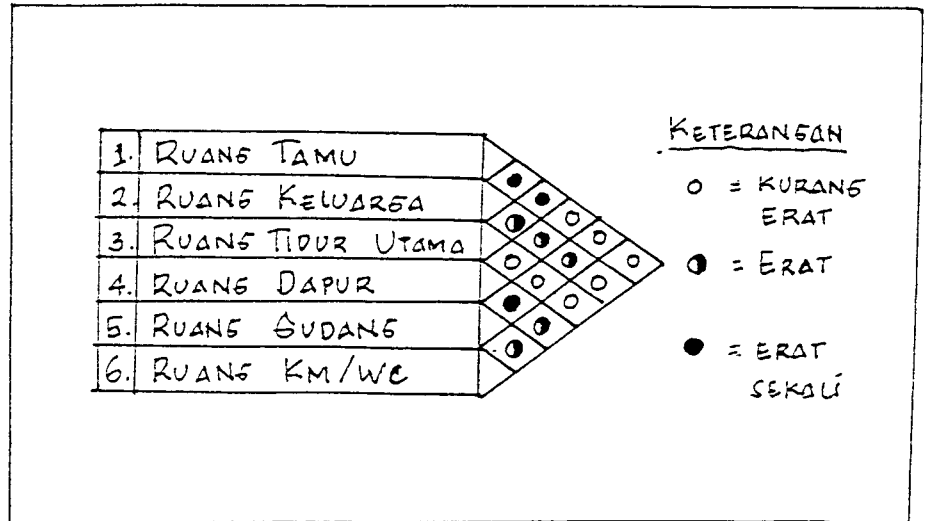 1. RUANG TAMU
2. RUANG KELUARGA
3. RUANG TIDUR UTAMA
4. RUANG DAPUR
5. RUANG GUDANG
6. RUANG KM/WC
KETERANGAN
○ = KURANG
ERAT
◑ = ERAT
● = ERAT
SEKALI